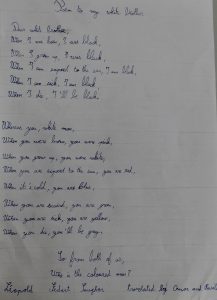 Poem to my white Brother
Dear white Brother,
When I was born, I was black,
When I grew up, I was black,
When I am exposed to the sun, I am black,
When I am sick, I am black
When I die, I'll be black.
Whereas you, white man,
When you were born, you were pink,
When you grew up, you were white,
When you are exposed to the sun, you are red,
When it's cold, you are blue,
When you are scared, you are green,
When you are sick, you are yellow,
When you die, you'll be grey.
So from both of us,
Who is the coloured man?
Léopold Sédar Senghor translated by Omar and